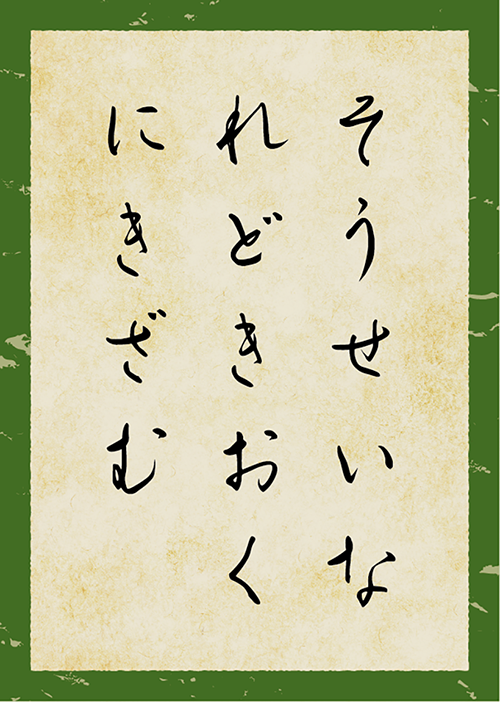 そうせいな
れどきおく
にきざむ